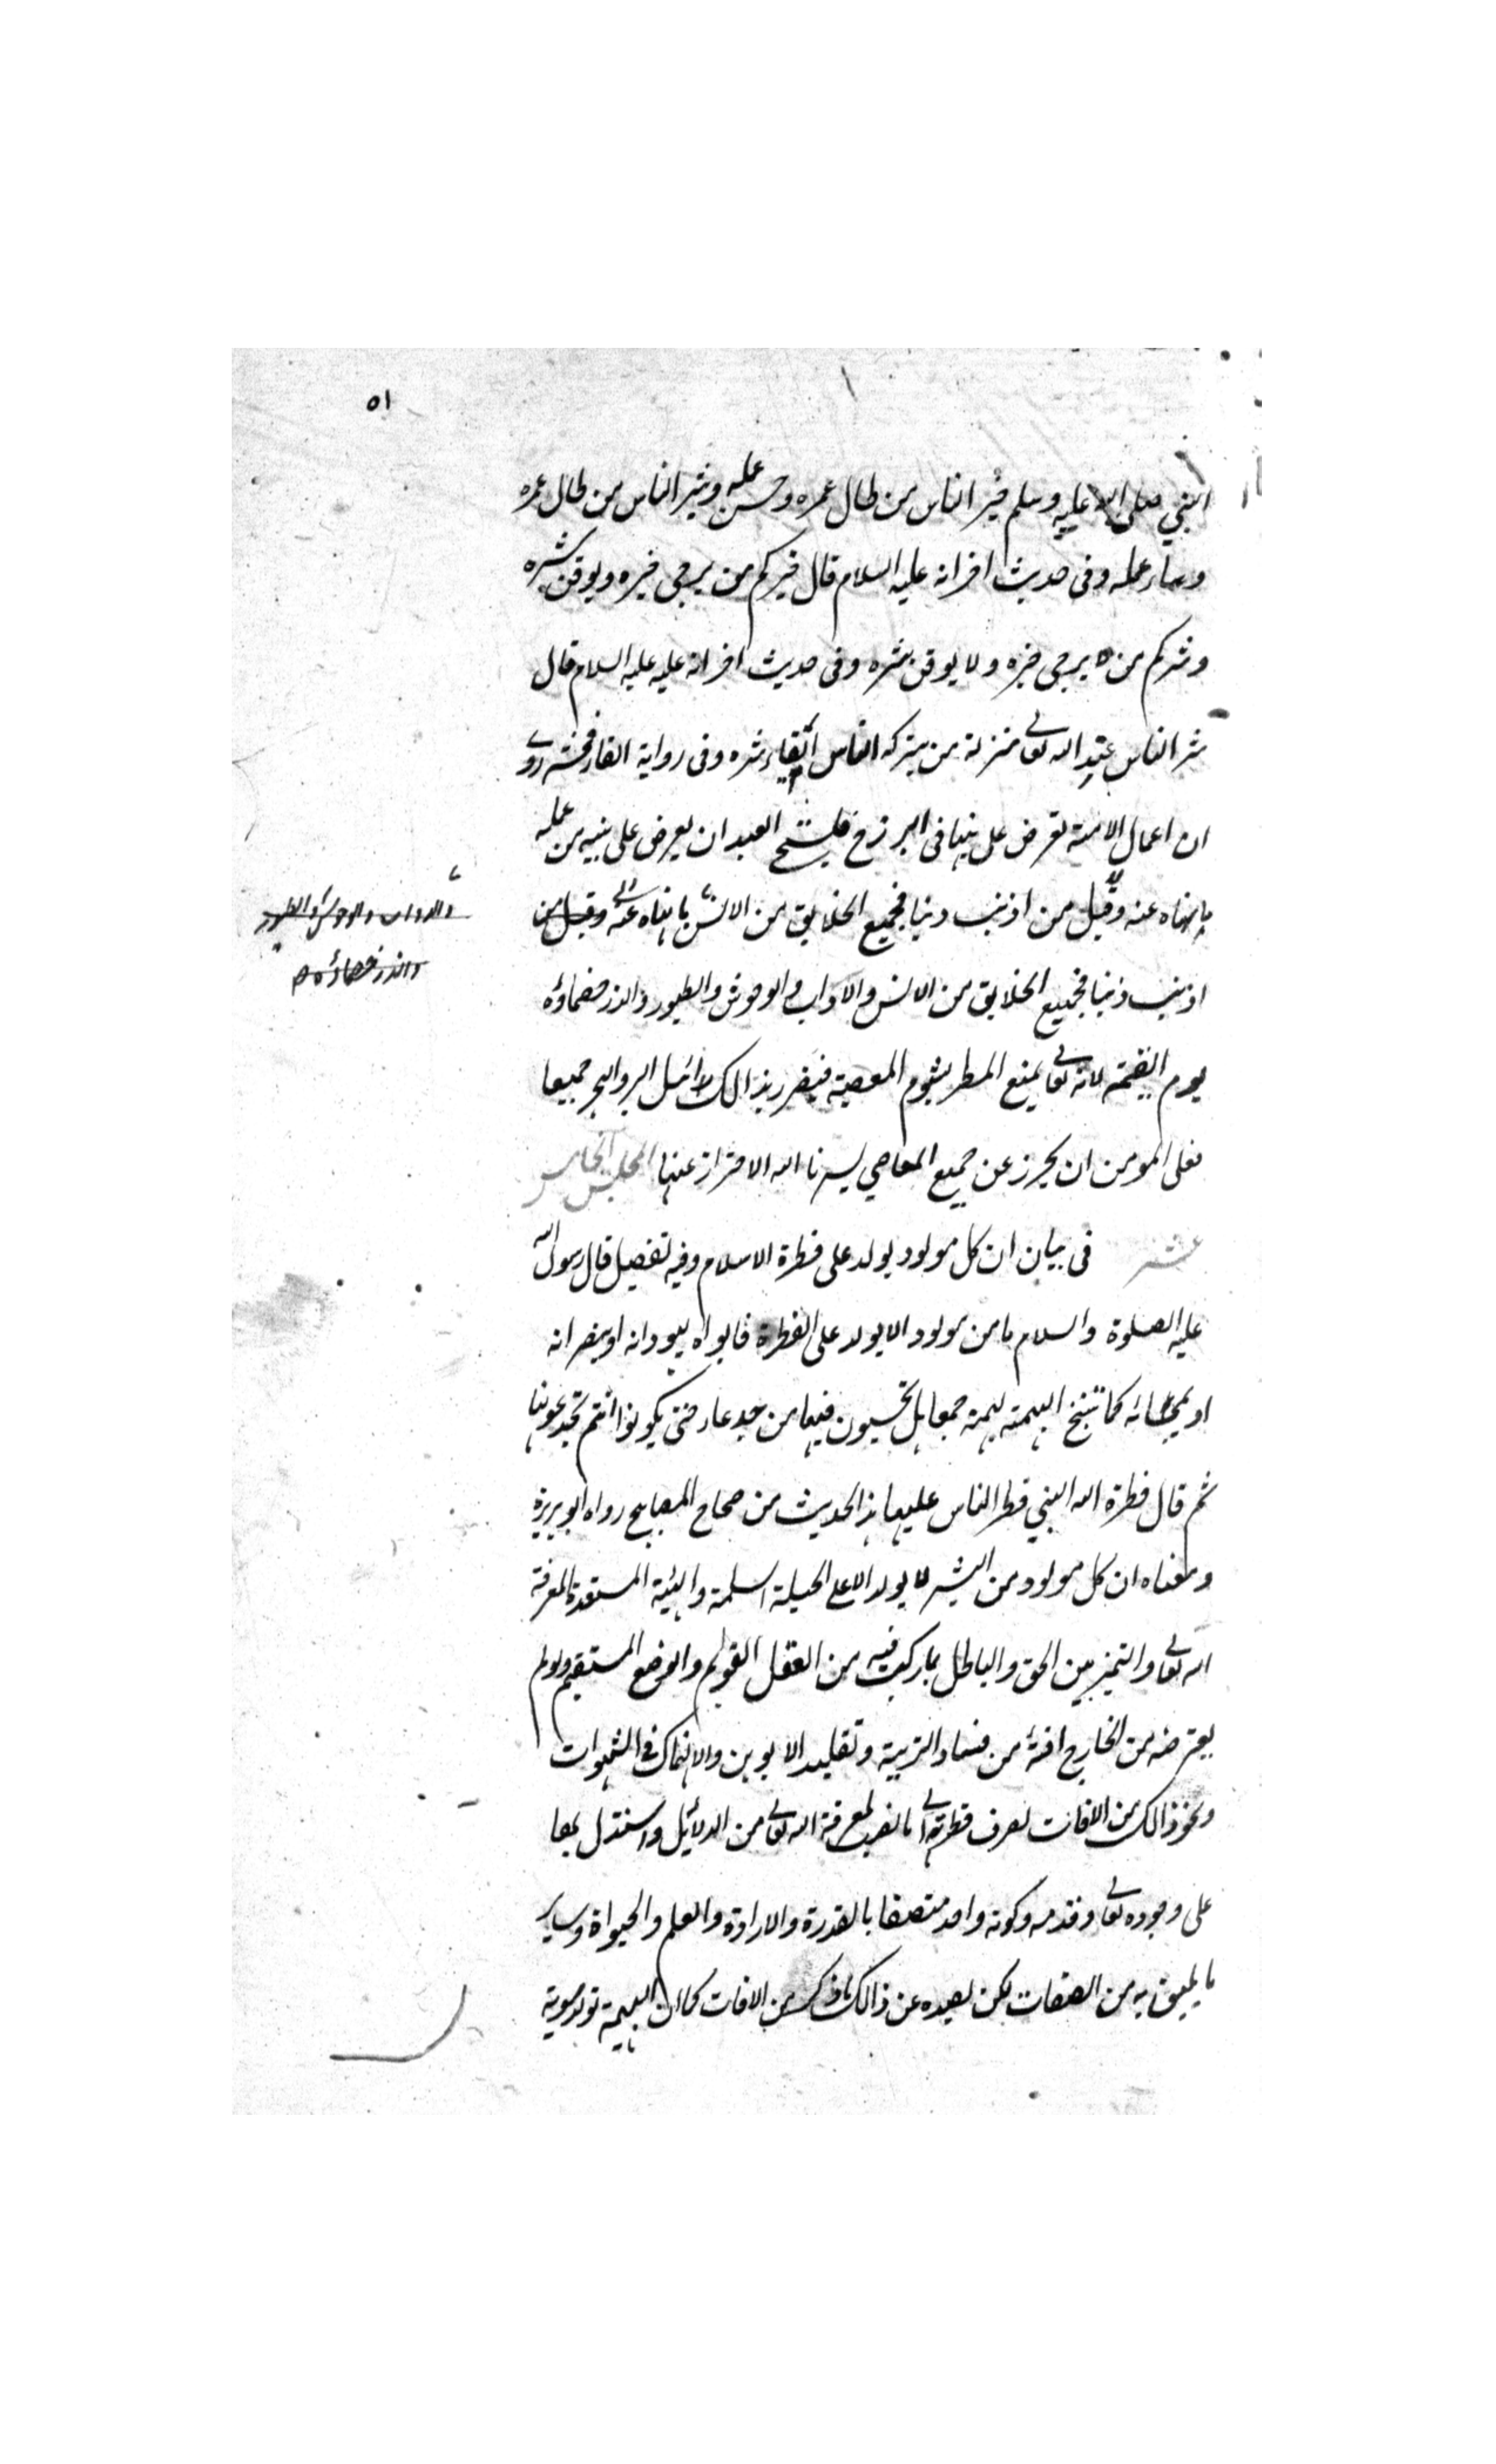 ٥١
النبي صلى الله عليه وسلم خير الناس من طال عمره وحسن عمله وشر الناس من طال عمره
وساء عمله وفى حديث اخر انه عليه السلام قال خيركم من يرجى خيره ويومن شره
وشركم من لا يرجى خيره ولا يومن شره وفى حديث اخر انه عليه عليه السلام قال
شر الناس عند الله تعالى منزلة من يتركه الناس اتقاء شره وفى رواية اتقاء فحشه روى
ان اعمال الامة تعرض على نبيها فى البرزخ فليستحي العبد ان يعرض على نبيه من عمله
ما نهاه عنه وقيل من اذنب ذنبا فجميع الخلايق من الانس ما نهاه عنه وقيل من
والدواب والوحوش والطيور
والذر خصماؤه
اذنب ذنبا فجميع الخلايق من الانس والدواب والوحوش والطيور والذر خصماؤه
يوم القيمة لانه تعالى يمنع المطر بشوم المعصية فيضر بذالك لاهل البر والبحر جميعا
فعلى المومن ان يحرز عن جميع المعاصي يسرنا الله الاحتراز عنها المجلس الخامس
عشر فى بيان ان كل مولود يولد على فطرة الاسلام وفيه تفصيل قال رسول الله
عليه الصلوة والسلام ما من مولود الا يولد على الفطرة فابواه يهودانه او ينصرانه
او يمجسانه كما تنتج البهيمة بهيمة جمعا هل تحسون فيها من جدعاء حتى يكونوا انتم تجدعونها
ثم قال فطرة الله التي فطر الناس عليها هذا الحديث من صحاح المصابيح رواه ابو هريرة
ومعناه ان كل مولود من البشر لا يولد الا على الجبلة السلمة والهيئة المستعدة لمعرفة
الله تعالى والتميز بين الحق والباطل بما ركبت فيه من العقل القويم والوضع المستقيم ولو لم
يعترضه من الخارج افة من فساد التربية وتقليد الابوين والانهماك فى الشهوات
ونحو ذالك من الافات لعرف فطرته الى ما نصب لمعرفة الله تعالى من الدلائل واستدل بها
على وجوده تعالى وقدمه وكونه واحد متصفا بالقدرة والارادة والعلم والحيواة وساير
ما يليق به من الصفات لكن يصده عن ذالك ما ذكر من الافات كما ان البهيمة تولد سوية